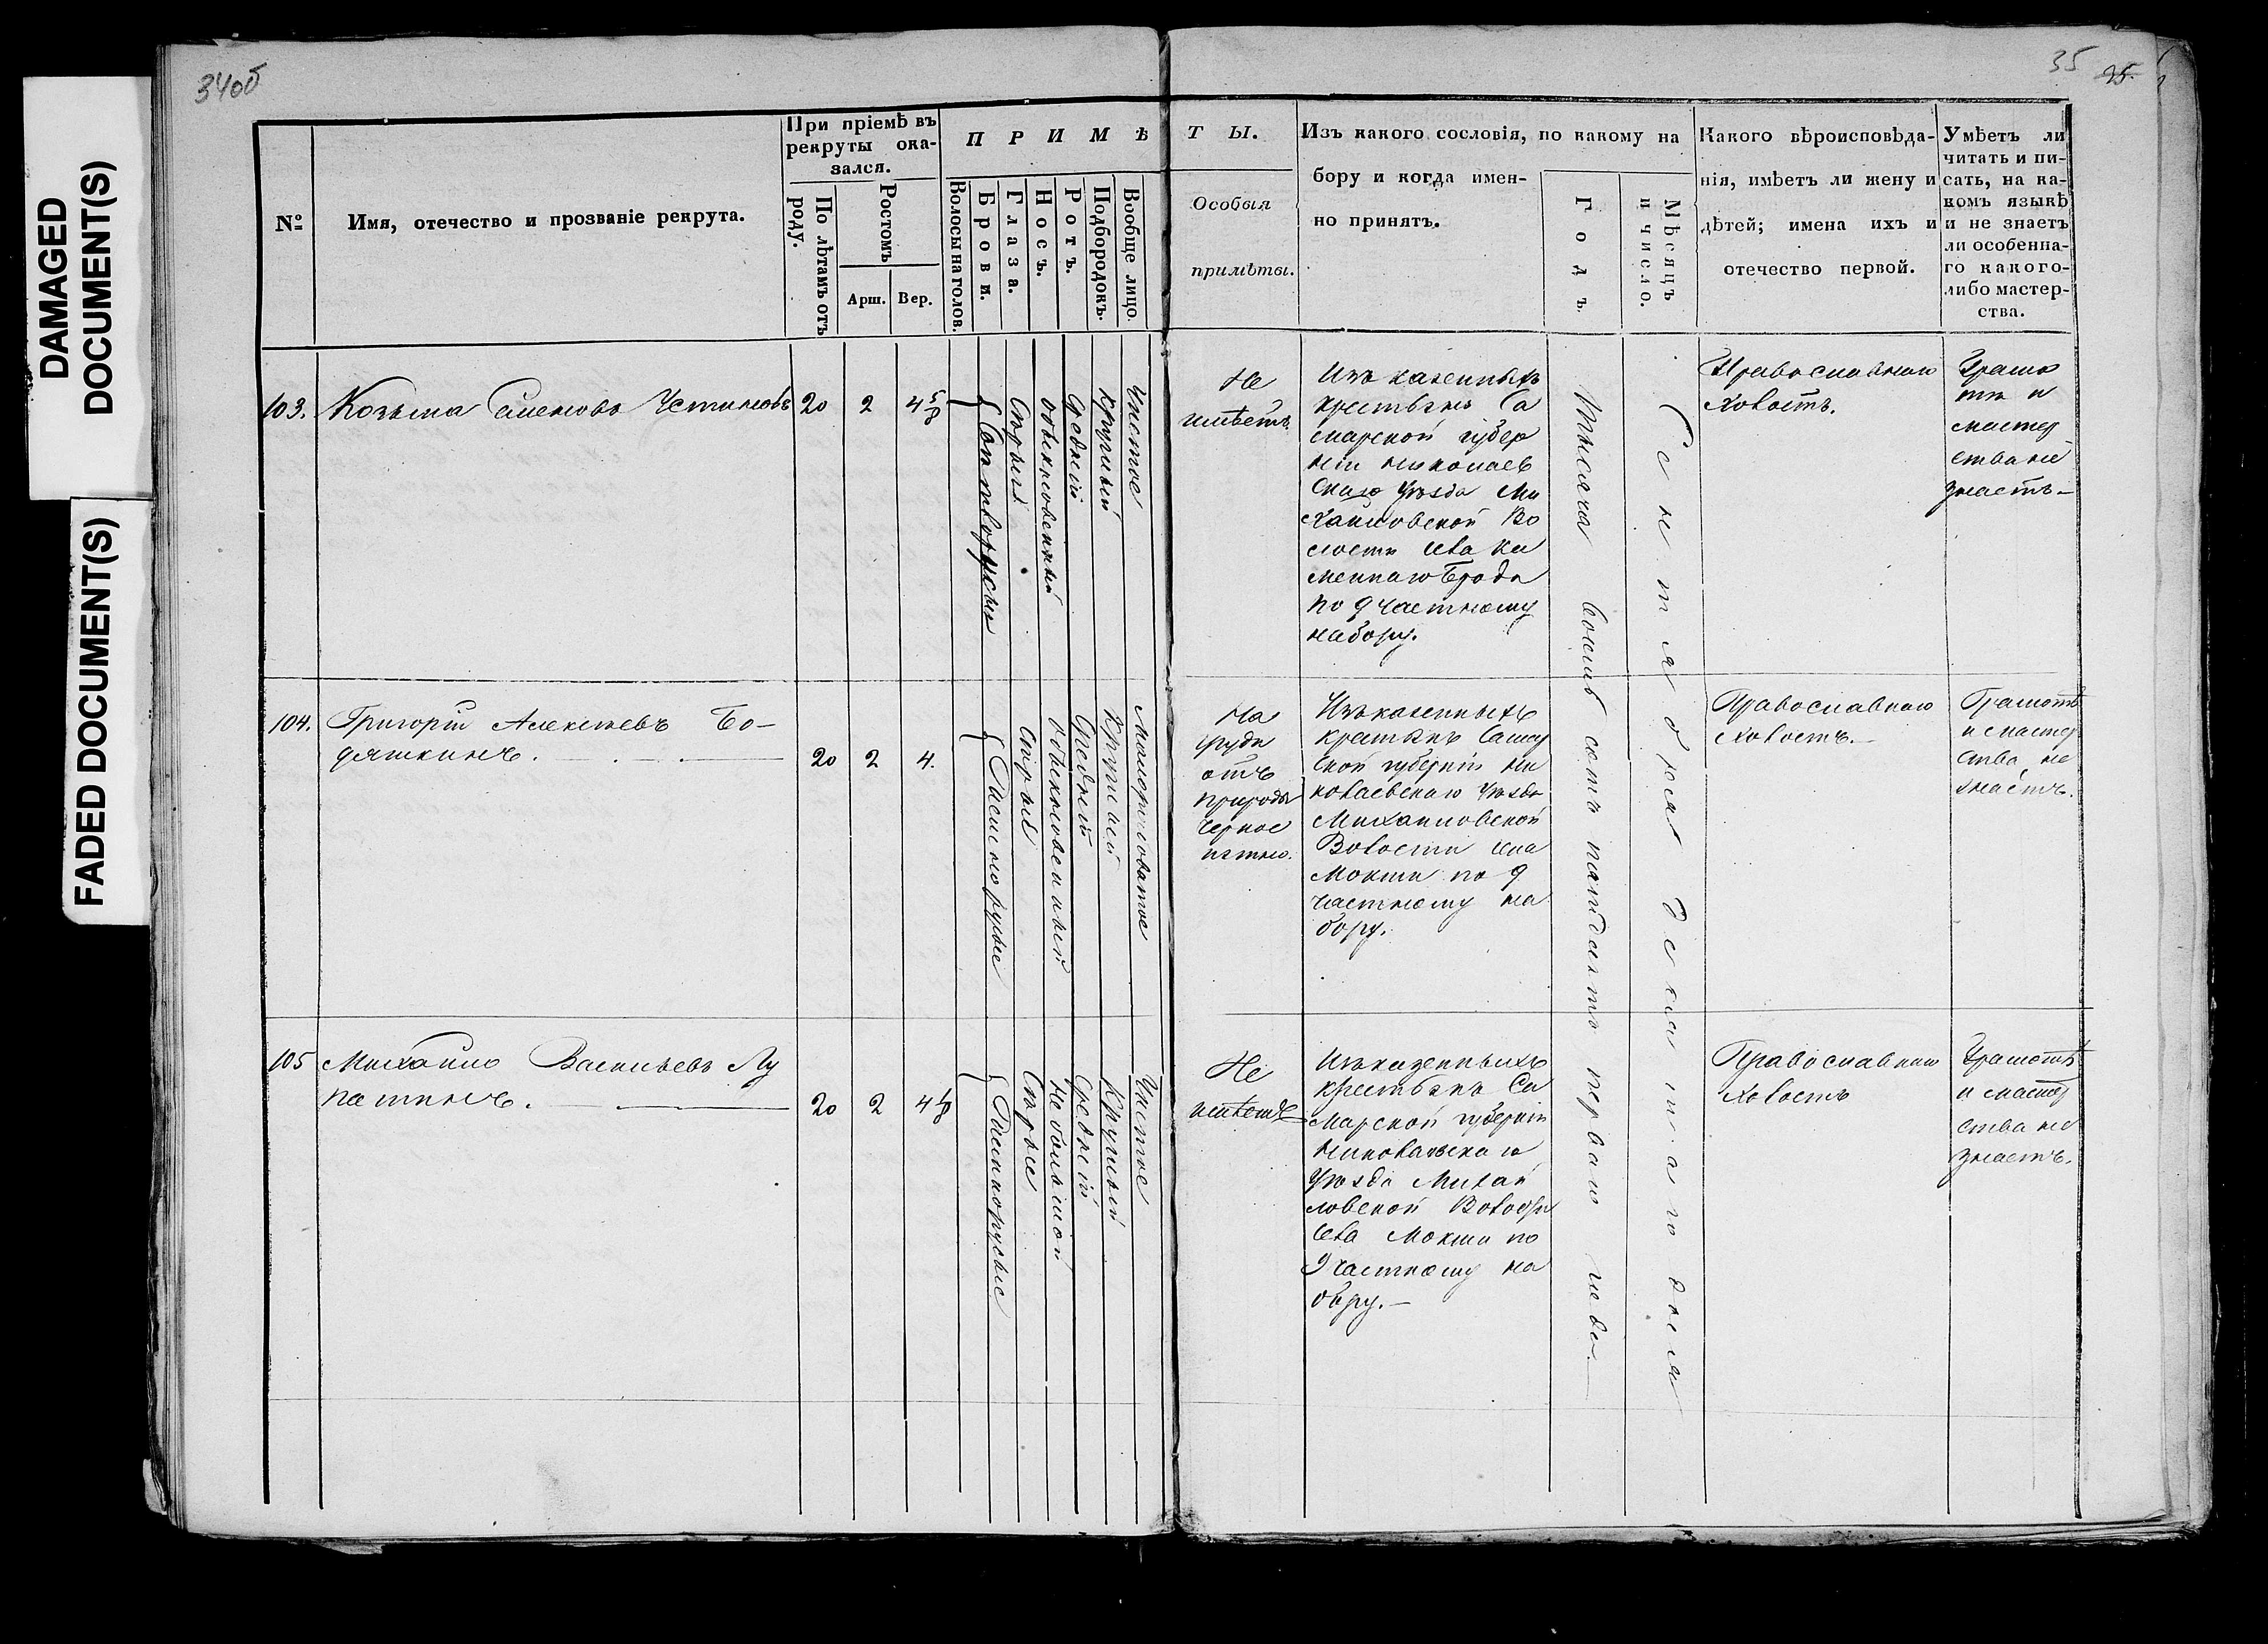 DAMAGED
DOCUMENT(S)
FADED DOCUMENT(S)
34об
35
25.
№
Имя, отечество и прозваніе рекрута.
При пріемѣ въ
рекруты ока-
зался.
По лѣтамъ отъ
роду.
Ростомъ
Арш.
Вер.
ПРИМѢ
Волосы на голов.
Брови.
Глаза.
Носъ.
Ротъ.
Подбородокъ.
Вообще лицо.
ТЫ.
Особыя
примѣты.
Изъ какого сословія, по какому на
бору и когда имен-
но принятъ.
Годъ.
Мѣсяцъ
и число.
Какого вѣроисповѣда-
нія, имѣетъ ли жену и
дѣтей; имена ихъ и
отечество первой.
Умѣетъ ли
читать и пи-
сать, на ка-
комъ языкѣ
и не знаетъ
ли особенна-
го какого-
либо мастер-
ства.
103.
Козьма Семеновъ Устиновъ
20
2
4 5/8
Свѣтлорусые
Сѣрые
обыкновенный
Средній
Круглый
Чистое
Не
имѣетъ
Изъ казенныхъ
крестьянъ Са
марской губер
ніи Николаев
скаго уѣзда Ми
хайловской Во
лости села Ка
меннаго Брода
по 9 частному
набору.
Тысяча восемь сотъ пятьдесятъ перваго года.
Сентября декятаго дня
Православнаго
Холостъ.
Грамо
тѣ и
мастер
ства не
знаетъ —
104.
Григорій Алексѣевъ Бо-
дяшкинъ.
20
2
4.
Свѣтлорусые
Сѣрые
Обыкновенный
Средній
Круглый
Малорябоватое
На
груди
отъ
природы
черное
пятно.
Изъ казенныхъ
крестьянъ Самар
ской губерніи Ни
колаевскаго Уѣзда
Михайловской
Волости села
Мокши по 9
частному на
бору.
Православнаго
холостъ. —
Грамотѣ
и мастер
ства не
знаетъ.
105
Михайло Васильевъ Лу
патинъ.
20
2
4 1/8
Свѣтлорусые
Сѣрые
Небольшой
Средній
Круглый
Чистое
Не
имѣетъ
Изъ казенныхъ
крестьянъ Са
марской губерніи
Николаевскаго
Уѣзда Михай
ловской Волости
села Мокши по
9 частному на
бору. —
Православнаго
холостъ
Грамотѣ
и мастер
ства не
знаетъ.